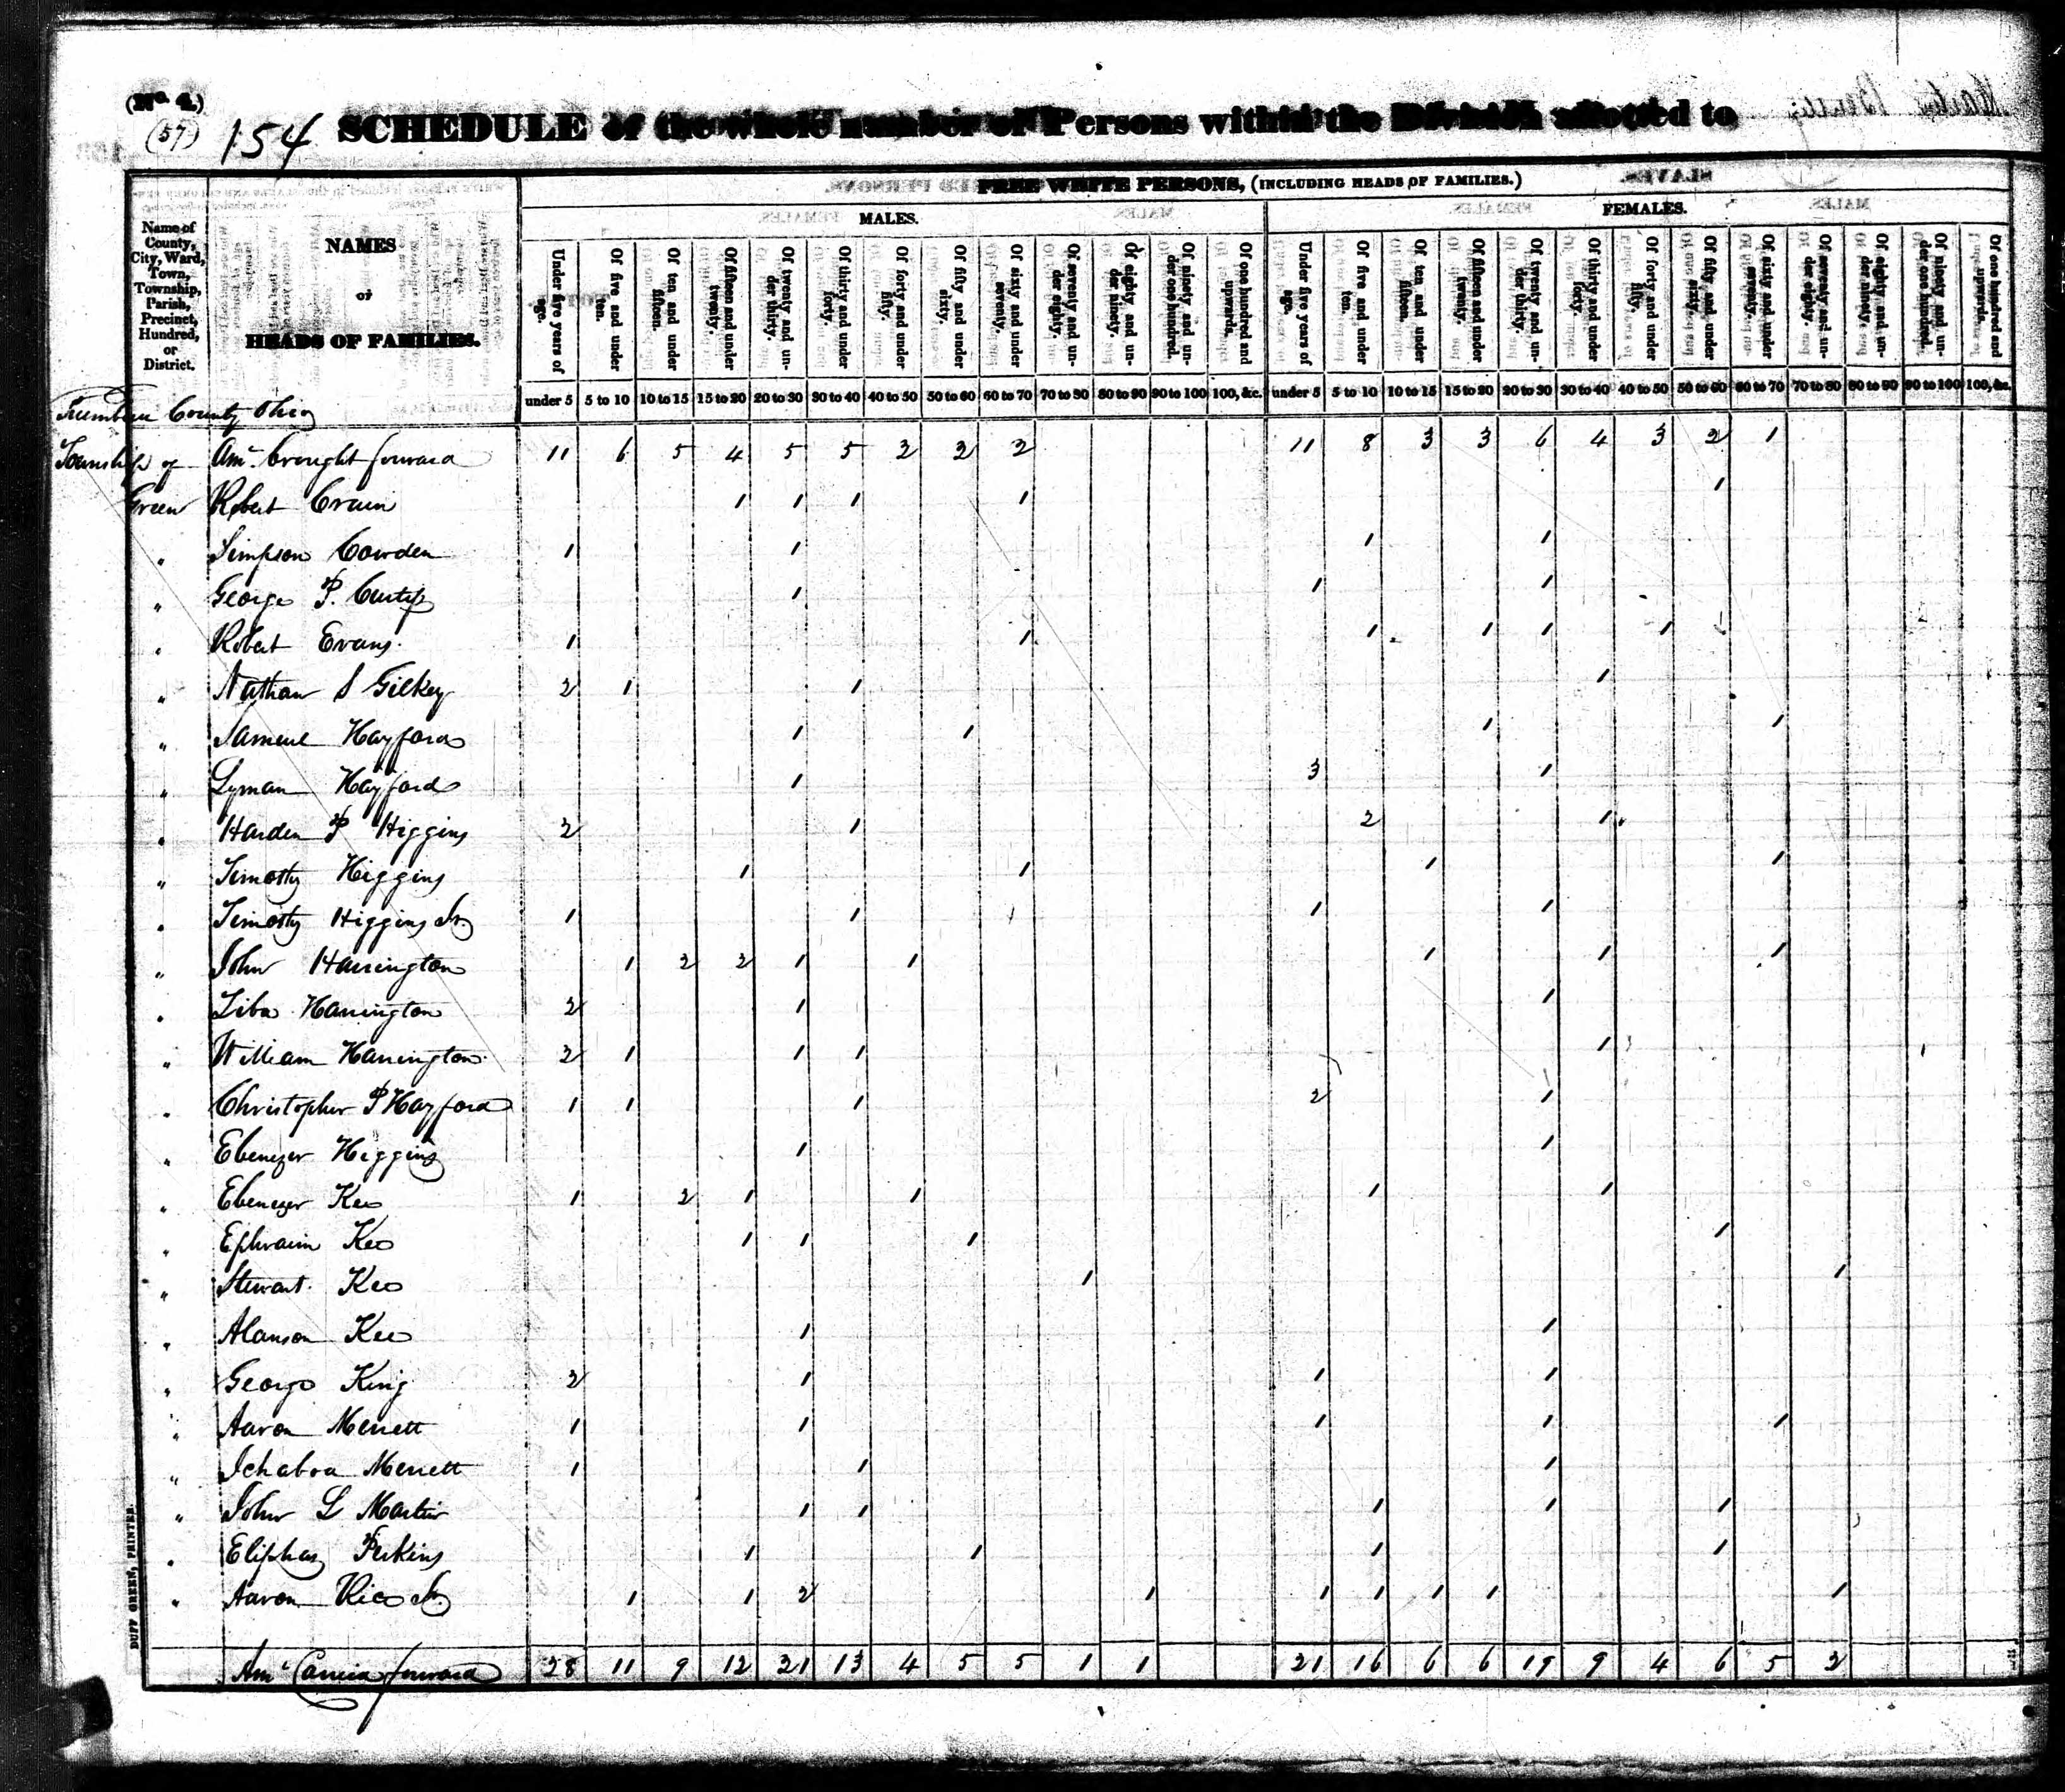 (No. 4.)
(57) 154 SCHEDULE of the whole number of Persons within the Division allotted to
FREE WHITE PERSONS, (INCLUDING HEADS OF FAMILIES.)
MALES. FEMALES.
Name of County, City, Ward, Town, Township, Parish, Precinct, Hundred, or District.
NAMES
OF
HEADS OF FAMILIES.
Under five years of age. Of five and under ten. Of ten and under fifteen. Of fifteen and under twenty. Of twenty and under thirty. Of thirty and under forty. Of forty and under fifty. Of fifty and under sixty. Of sixty and under seventy. Of seventy and under eighty. Of eighty and under ninety. Of ninety and under one hundred. Of one hundred and upwards.
Under five years of age. Of five and under ten. Of ten and under fifteen. Of fifteen and under twenty. Of twenty and under thirty. Of thirty and under forty. Of forty and under fifty. Of fifty and under sixty. Of sixty and under seventy. Of seventy and under eighty. Of eighty and under ninety. Of ninety and under one hundred. Of one hundred and upwards.
under 5 5 to 10 10 to 15 15 to 20 20 to 30 30 to 40 40 to 50 50 to 60 60 to 70 70 to 80 80 to 90 90 to 100 100, &c. under 5 5 to 10 10 to 15 15 to 20 20 to 30 30 to 40 40 to 50 50 to 60 60 to 70 70 to 80 80 to 90 90 to 100 100, &c.
Trumbull County Ohio
Township of Amt. brought forward 11 6 5 4 5 5 2 2 2 11 8 3 3 6 4 3 2 1
Green Robert Crain 1 1 1 1 1
" Simpson Cowden 1 1 1 1
" George P. Curtis 1 1 1
" Robert Evans 1 1 1 1 1 1
" Nathan S Gilkey 2 1 1 1
" Samuel Hayford 1 1 1 1
" Lyman Hayford 1 3 1
" Harden P Higgins 2 1 2 1
" Timothy Higgins 1 1 1 1
" Timothy Higgins Jr. 1 1 1 1
" John Harrington 1 2 2 1 1 1 1 1
" Harrington 2 1 1
" William Harrington 2 1 1 1 1
" Christopher P Hayford 1 1 1 2 1
" Ebenezer Higgins 1 1
" Ebenezer Kee 1 2 1 1 1 1
" Ephraim Kee 1 1 1 1
" Stewart Kee 1 1
" Alanson Kee 1 1
" George King 2 1 1 1
" Aaron Merrett 1 1 1 1 1
" Ichabod Merrett 1 1 1
" John L Martin 1 1 1 1 1
" Eliphaz Perkins 1 1 1 1
" Aaron Rice 1 1 2 1 1 1 1 1 1
Amt. Carried forward 28 11 9 12 21 13 4 5 5 1 1 21 16 6 6 19 9 4 6 5 2
DUFF GREEN, PRINTER.